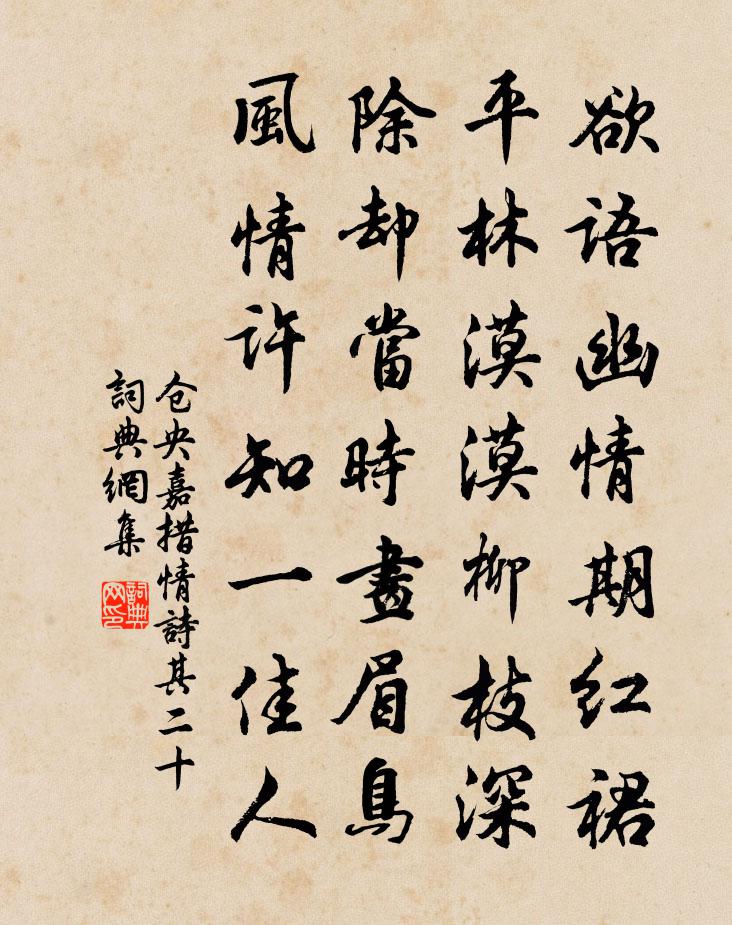 欲語幽情期红裙
平林漠漠柳枝深
除却當時畫眉鳥
風情許知一佳人
仓央嘉措情詩其二十
詞典網集
詞典网印